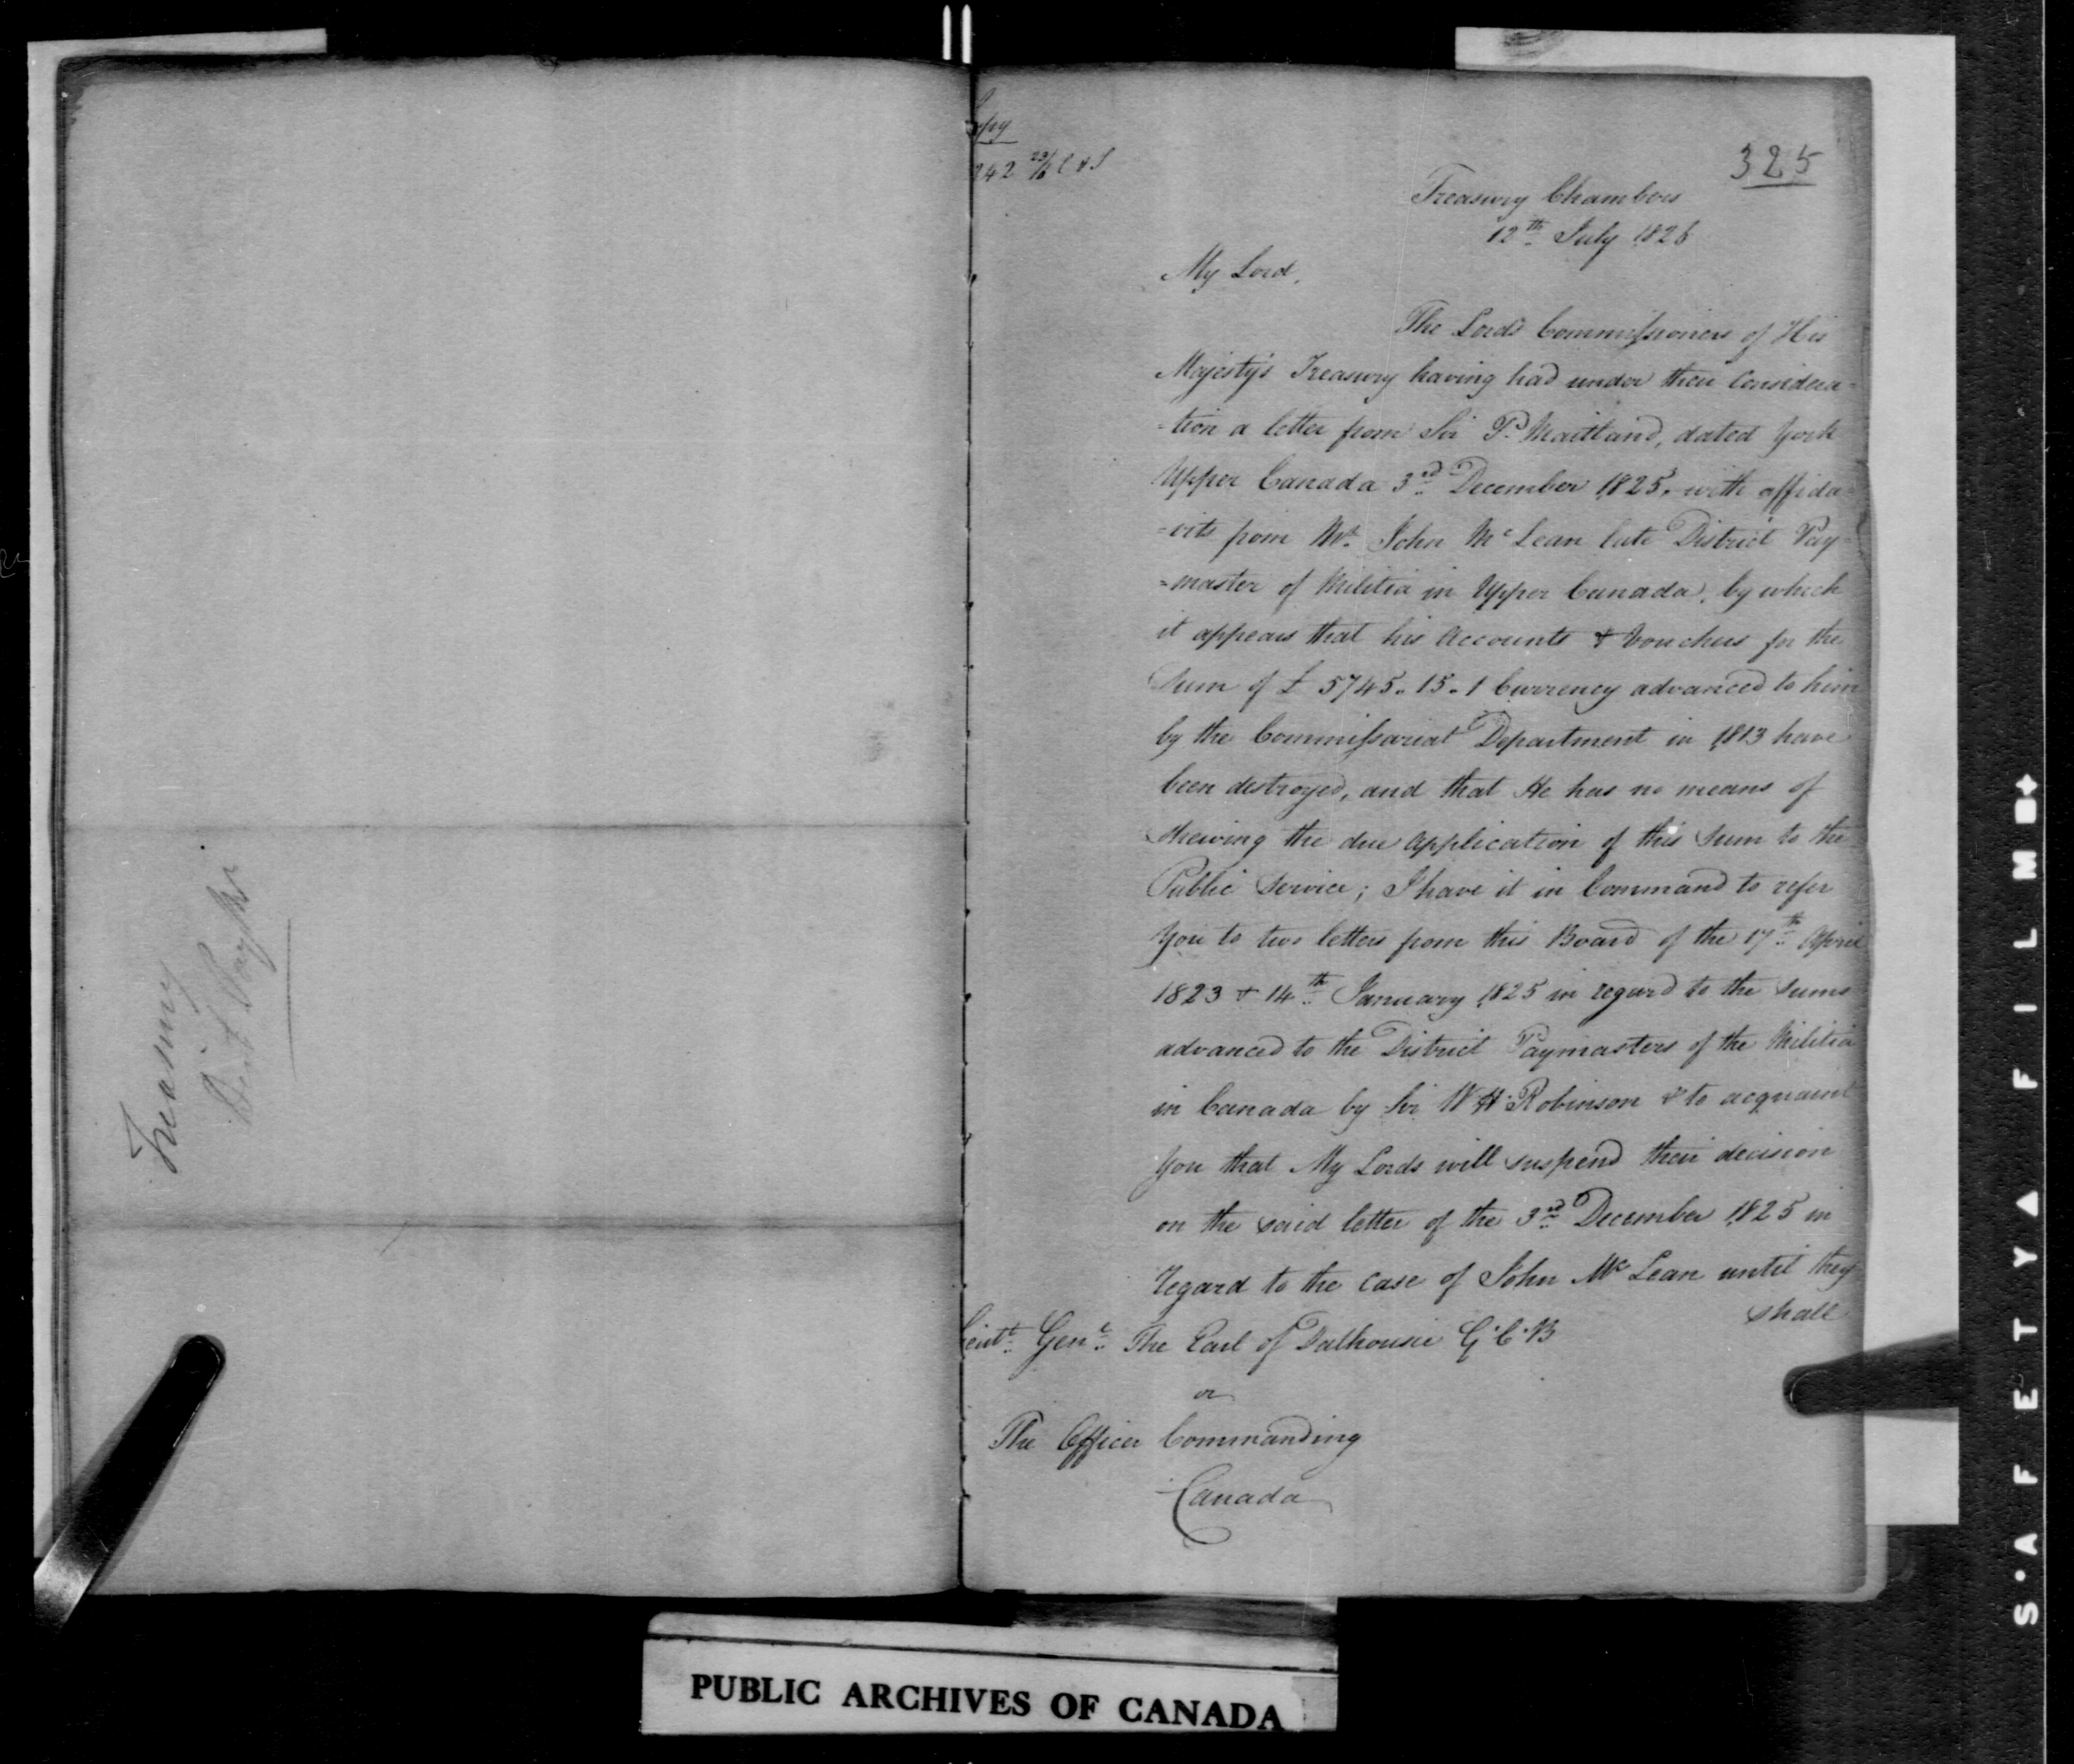 Treasury
325
Treasury Chambers
12th July 1826
My Lord,
The Lords Commissioners of His
Majesty's Treasury having had under their Considera=
=tion a letter from Sir P. Maitland, dated York
Upper Canada 3rd December 1825, with affida=
=vits from Mr. John McLean late District Pay=
=master of Militia in Upper Canada, by which
it appears that his Accounts & Vouchers for the
Sum of £ 5745.15.1 Currency advanced to him
by the Commissariat Department in 1813 have
been destroyed, and that He has no means of
shewing the due Application of this Sum to the
Public Service; I have it in Command to refer
You to two letters from this Board of the 17th April
1823 & 14th January 1825 in regard to the Sums
advanced to the District Paymasters of the Militia
in Canada by Sir W H Robinson & to acquaint
You that My Lords will suspend their decision
on the said letter of the 3rd December 1825 in
regard to the case of John McLean until they
shall
Lieutt. Genl. The Earl of Dalhousie G.C.B
or
The Officer Commanding
Canada
PUBLIC ARCHIVES OF CANADA
SAFETY FILM